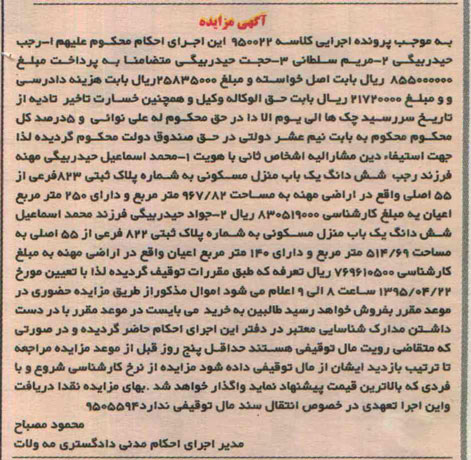 آگهی مزایده
به موجب پرونده اجرایی کلاسه ۹۵۰۰۲۲ این اجرای احکام محکوم علیهم ۱-رجب
حیدربیگی ۲-مریم سلطانی ۳-حجت حیدربیگی متضامنا به پرداخت مبلغ
۸۵۵۰۰۰۰۰۰ ریال بابت اصل خواسته و مبلغ ۲۵۸۳۵۰۰۰ریال بابت هزینه دادرسی
و و مبلغ ۲۱۷۲۰۰۰۰ ریال بابت حق الوکاله وکیل و همچنین خسارت تاخیر تادیه از
تاریخ سررسید چک ها الی یوم الا دا در حق محکوم له علی نوائی و ۵درصد کل
محکوم محکوم به بابت نیم عشر دولتی در حق صندوق دولت محکوم گردیده لذا
جهت استیفاء دین مشارالیه اشخاص ثانی با هویت ۱-محمد اسماعیل حیدربیگی مهنه
فرزند رجب شش دانگ یک باب منزل مسکونی به شماره پلاک ثبتی ۸۲۳فرعی از
۵۵ اصلی واقع در اراضی مهنه به مساحت ۹۶۷/۸۲ متر مربع و دارای ۲۵۰ متر مربع
اعیان یه مبلغ کارشناسی ۸۳۰۵۱۹۰۰۰ ریال ۲-جواد حیدربیگی فرزند محمد اسماعیل
شش دانگ یک باب منزل مسکونی به شماره پلاک ثبتی ۸۲۲ فرعی از ۵۵ اصلی به
مساحت ۵۱۴/۶۹ متر مربع و دارای ۱۴۰ متر مربع اعیان واقع در اراضی مهنه به مبلغ
کارشناسی ۷۶۹۶۱۰۵۰۰ ریال تعرفه که طبق مقررات توقیف گردیده لذا با تعیین مورخ
۱۳۹۵/۰۴/۲۲ ساعت ۸ الی ۹ اعلام می شود اموال مذکوراز طریق مزایده حضوری در
موعد مقرر بفروش خواهد رسید طالبین به خرید می بایست در موعد مقرر با در دست
داشتن مدارک شناسایی معتبر در دفتر این اجرای احکام حاضر گردیده و در صورتی
که متقاضی رویت مال توقیفی هستند حداقل پنج روز قبل از موعد مزایده مراجعه
تا ترتیب بازدید ایشان از مال توقیفی داده شود مزایده از نرخ کارشناسی شروع و با
فردی که بالاترین قیمت پیشنهاد نماید واگذار خواهد شد .بهای مزایده نقدا دریافت
واین اجرا تعهدی در خصوص انتقال سند مال توقیفی ندارد۹۵۰۵۵۹۴
محمود مصباح
مدیر اجرای احکام مدنی دادگستری مه ولات